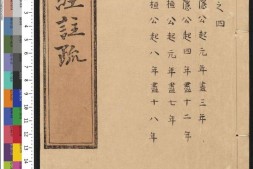 之四
隱公起元年盡三年
隱公起四年盡十一年
桓公起元年盡七年
桓公起八年盡十八年
註疏